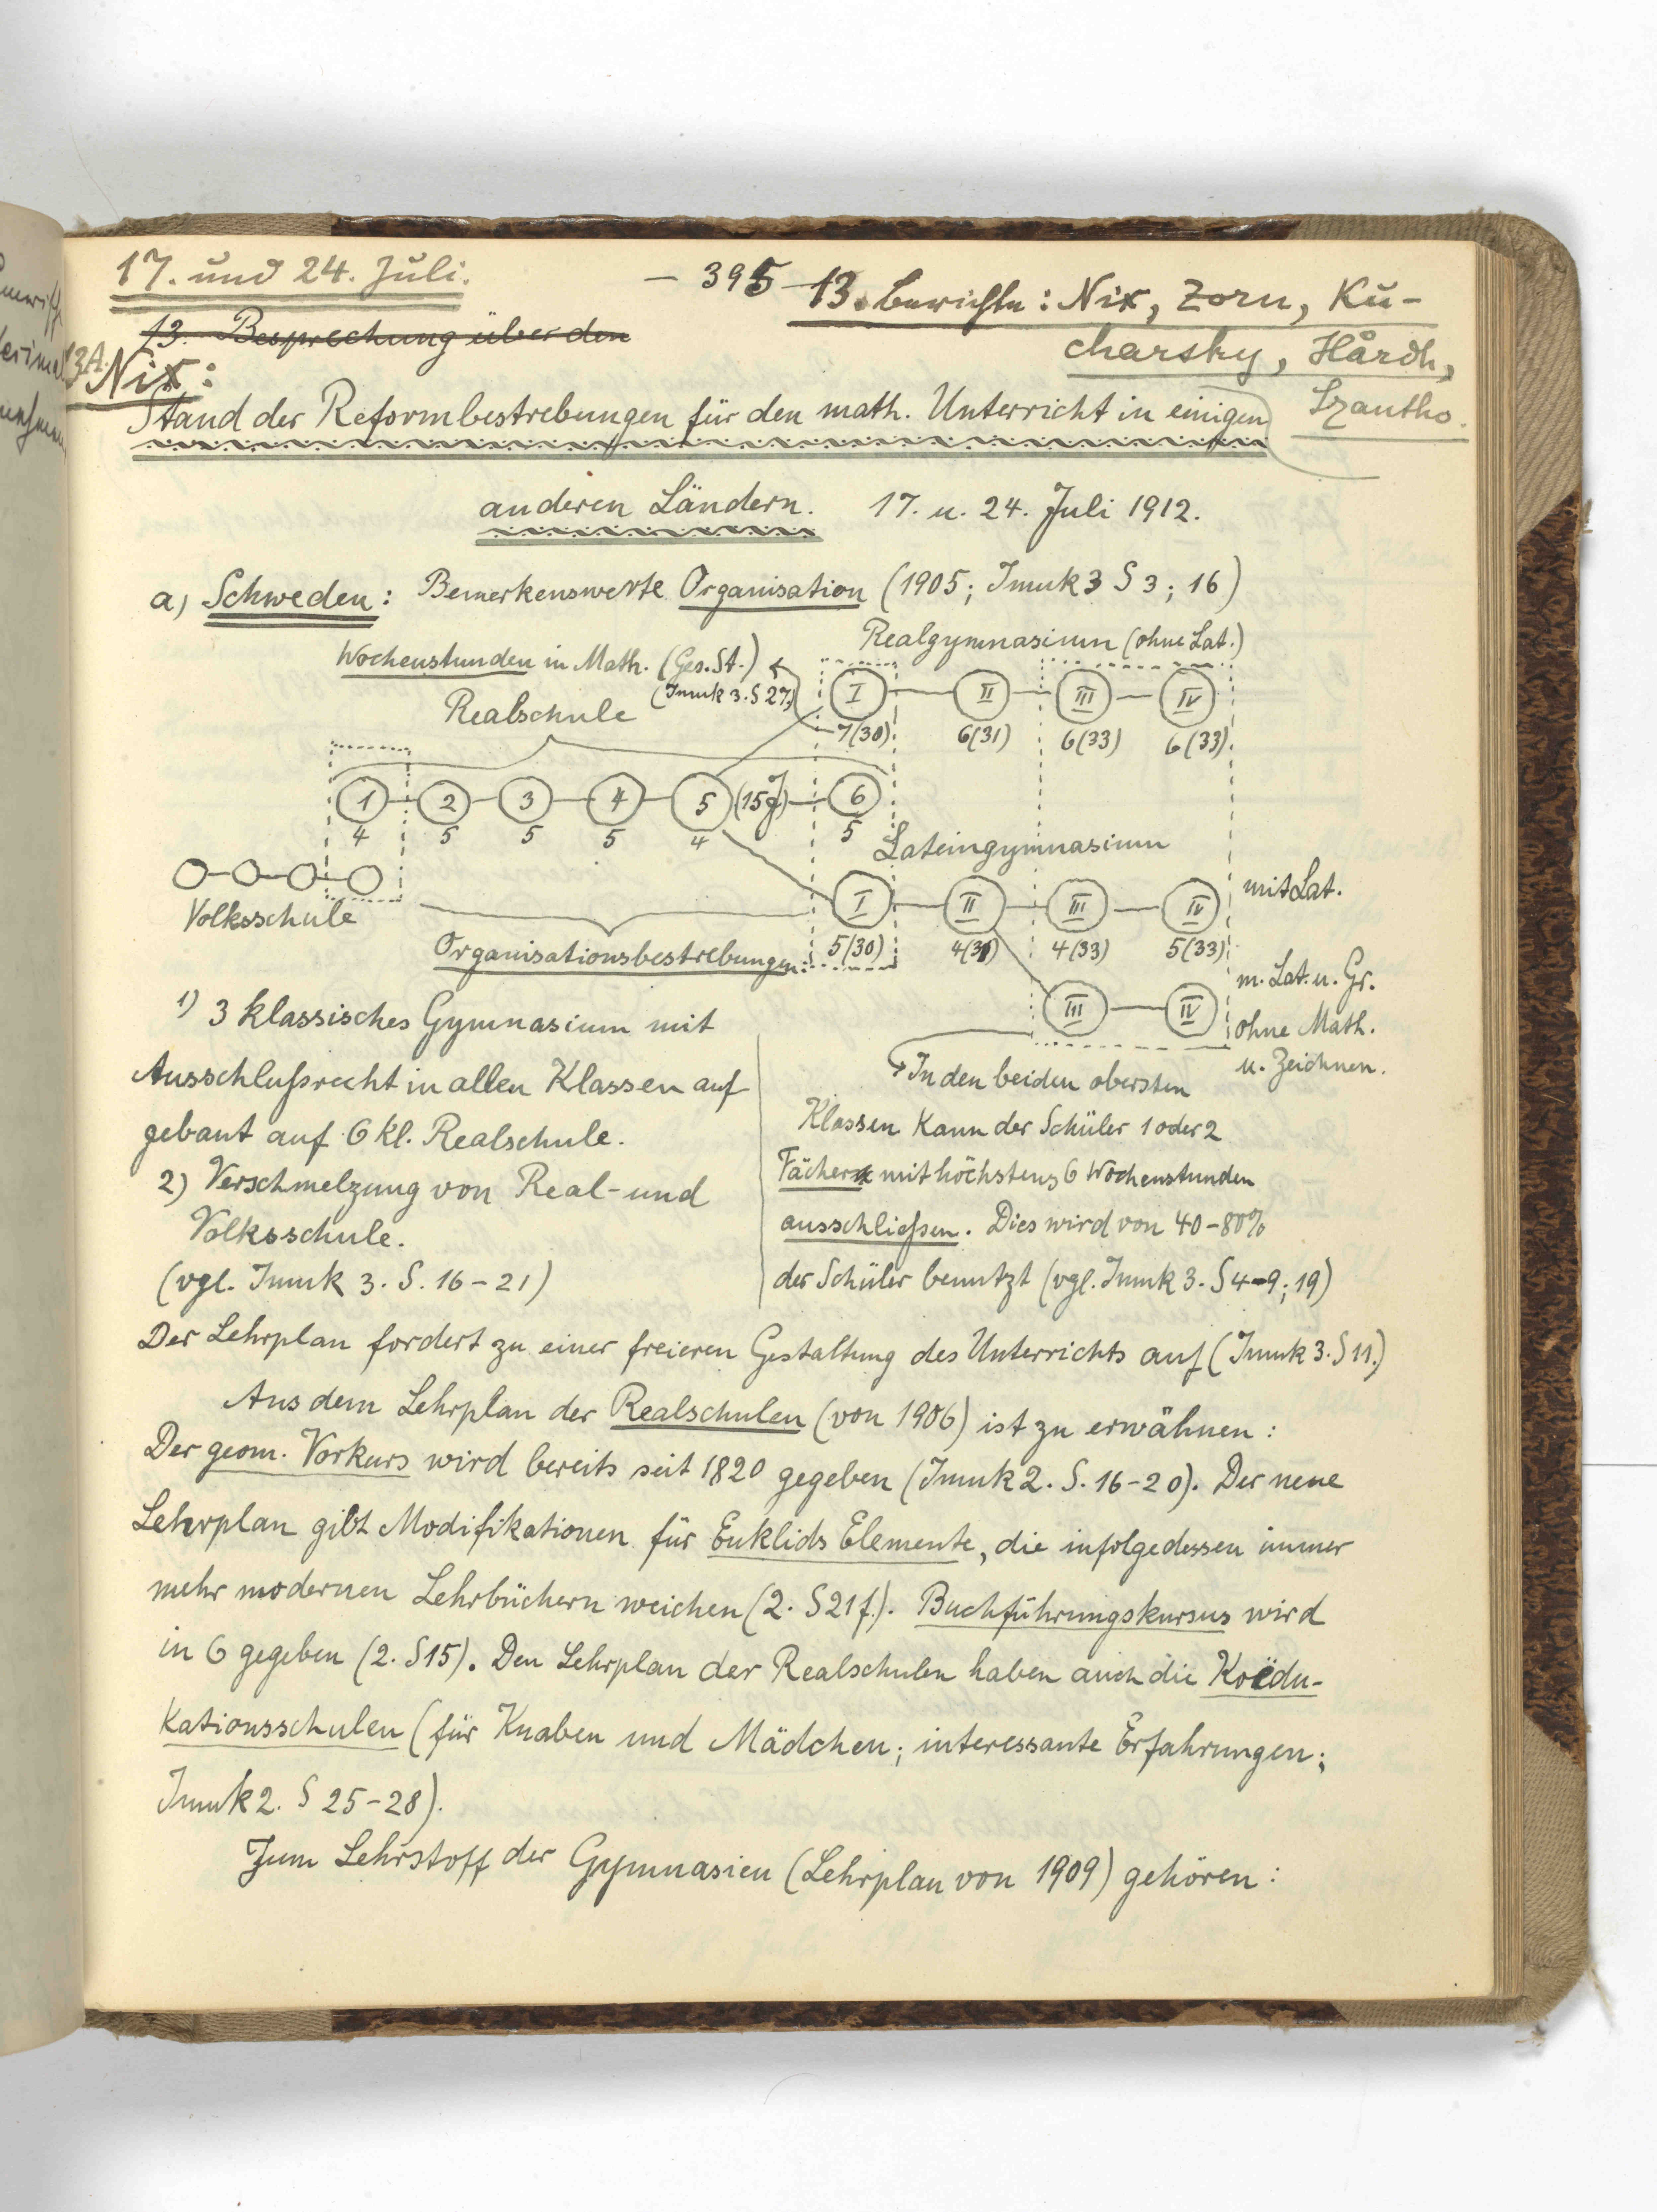 17. und 24. Juli.
- 395 -
13. Berichte: Nix, Zorn, Ku-
charsky, Hårdh,
Szantho.
13. Besprechung über den
13A.
Nix:
Stand der Reformbestrebungen für den math. Unterricht in einigen
anderen Ländern. 17. u. 24. Juli 1912.
a) Schweden: Bemerkenswerte Organisation (1905; Imuk 3 S 3; 16)
Realgymnasium (ohne Lat.)
Wochenstunden in Math. (Ges. St.)
(Imuk 3. S 27)
I II III IV
7(30) 6(31) 6(33) 6(33)
Realschule
1 2 3 4 5 (15J) 6
4 5 5 5 4 5
Lateingymnasium
Volksschule
I II III IV mit Lat.
5(30) 4(31) 4(33) 5(33)
Organisationsbestrebungen:
III IV
m. Lat. u. Gr.
ohne Math.
u. Zeichnen.
1) 3 klassisches Gymnasium mit
Ausschlußrecht in allen Klassen auf
gebaut auf 6 kl. Realschule.
2) Verschmelzung von Real- und
Volksschule.
(vgl. Imuk 3. S. 16-21)
In den beiden obersten
Klassen kann der Schüler 1 oder 2
Fächer mit höchstens 6 Wochenstunden
ausschließen. Dies wird von 40-80%
der Schüler benutzt (vgl. Imuk 3. S 4-9; 19)
Der Lehrplan fordert zu einer freieren Gestaltung des Unterrichts auf (Imuk 3. S 11.)
Aus dem Lehrplan der Realschulen (von 1906) ist zu erwähnen:
Der geom. Vorkurs wird bereits seit 1820 gegeben (Imuk 2. S. 16-20). Der neue
Lehrplan gibt Modifikationen für Euklids Elemente, die infolgedessen immer
mehr modernen Lehrbüchern weichen (2. S 21 f.). Buchführungskursus wird
in 6 gegeben (2. S 15). Den Lehrplan der Realschulen haben auch die Koëdu-
kationsschulen (für Knaben und Mädchen; interessante Erfahrungen;
Imuk 2. S 25-28).
Zum Lehrstoff der Gymnasien (Lehrplan von 1909) gehören: